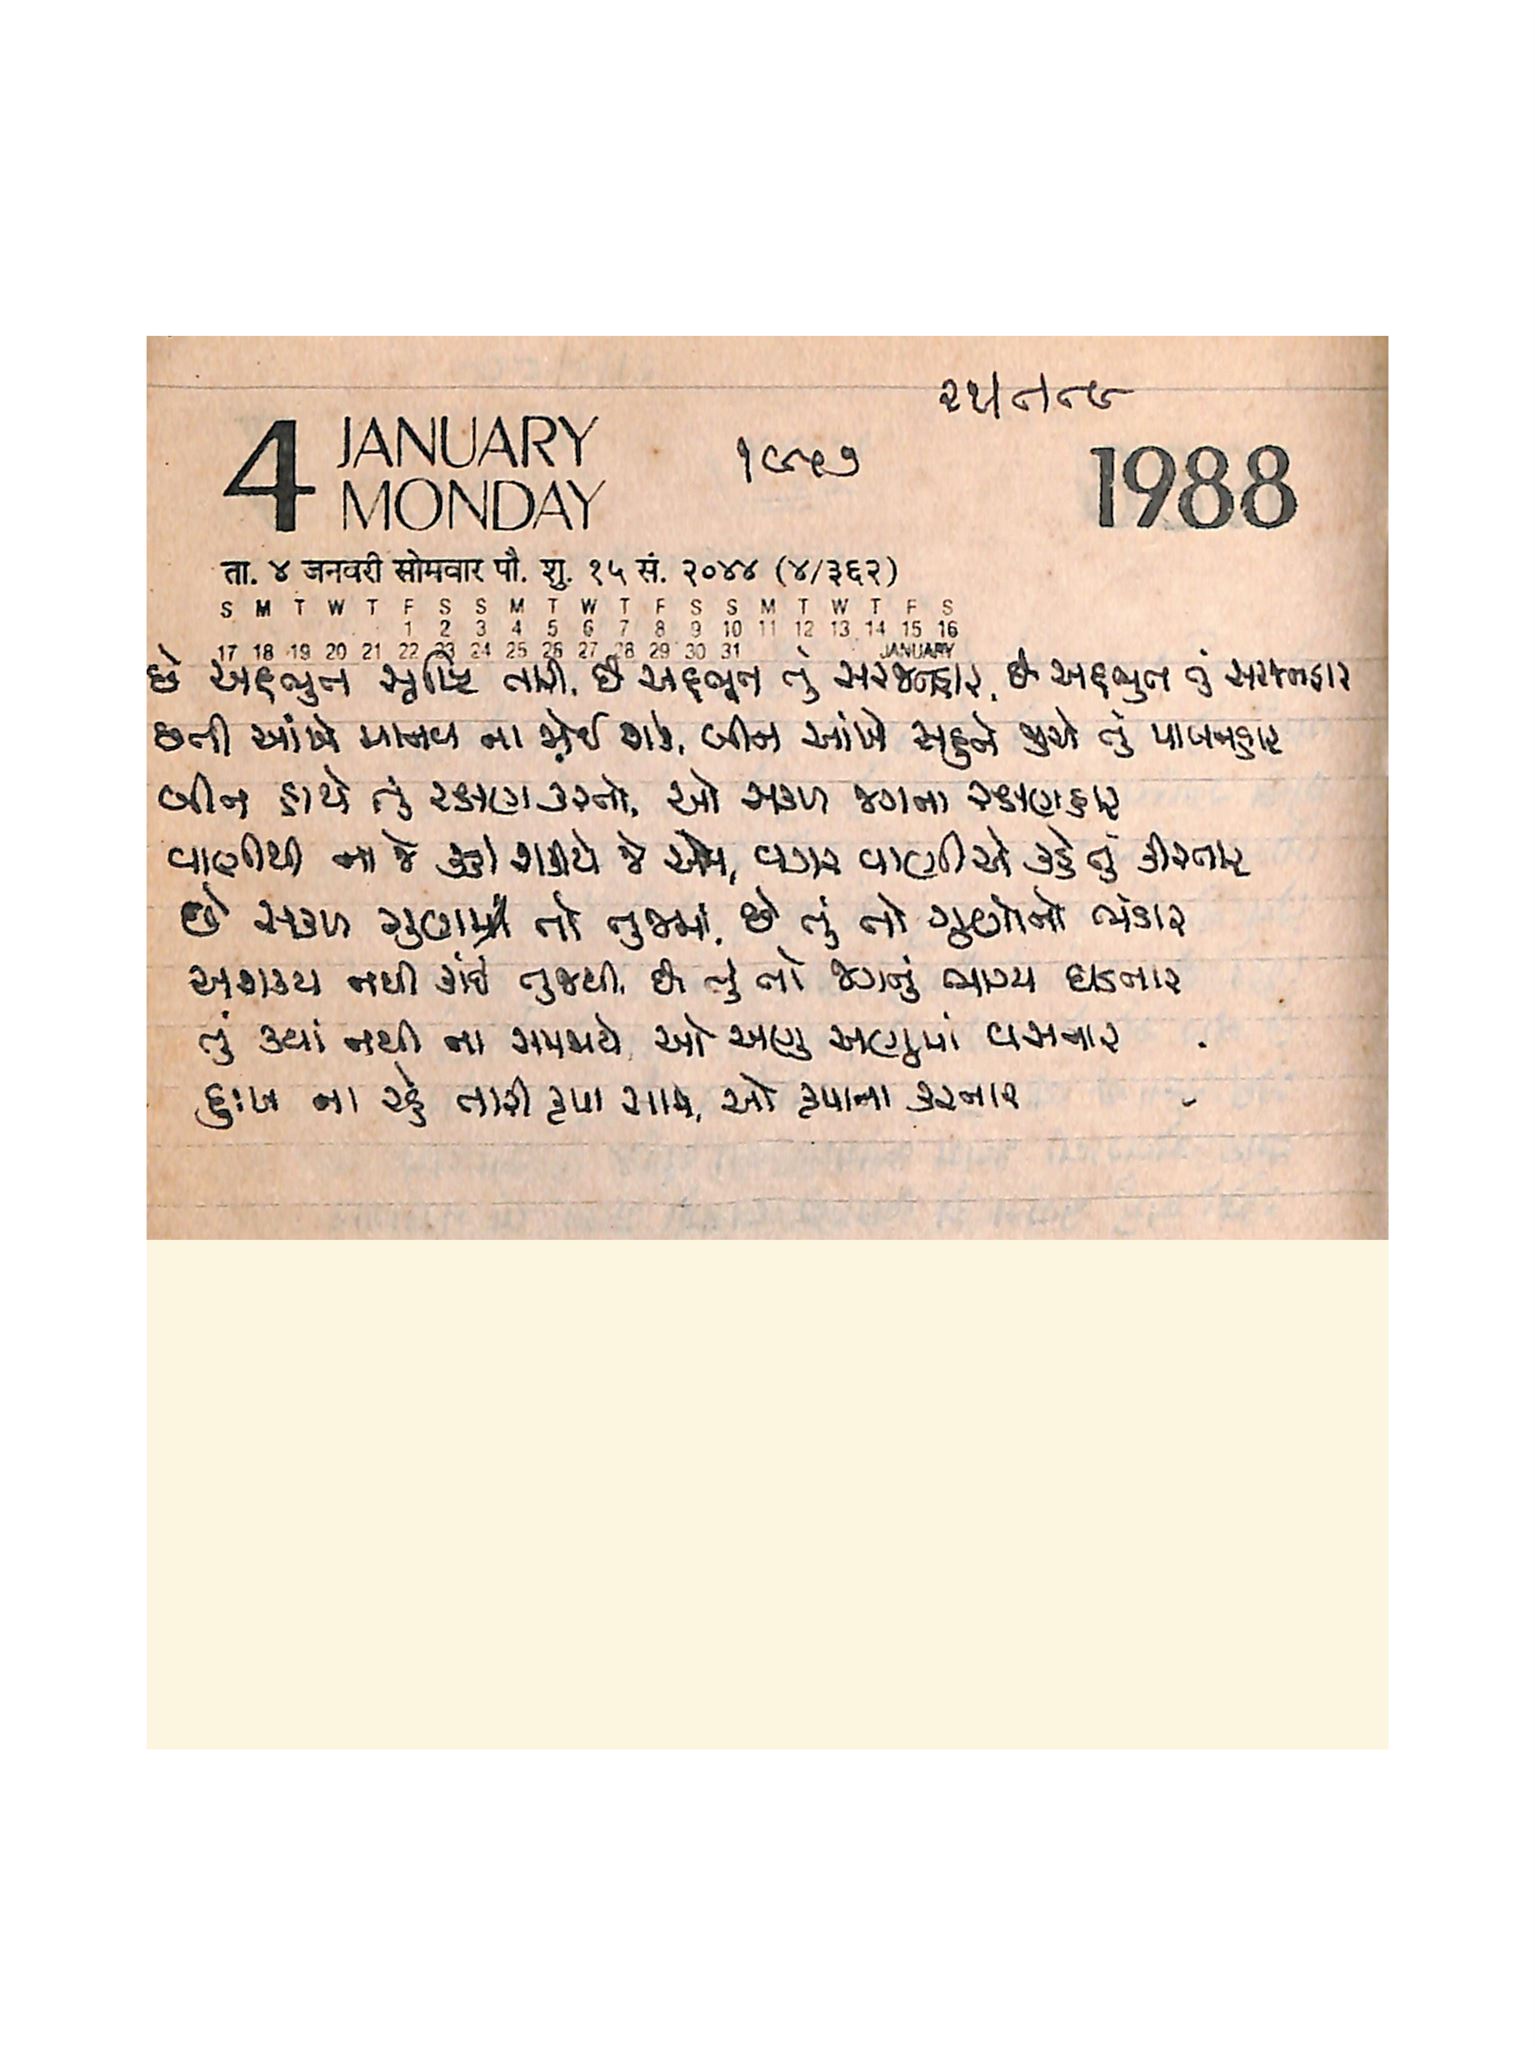 ૨૫/૮/૮૯
4 JANUARY 1988
MONDAY
૧૯૫૭
ता. ४ जनवरी सोमवार पौ. शु. १५ सं. २०४४ (४/३६२)
S M T W T F S S M T W T F S S M T W T F S
1 2 3 4 5 6 7 8 9 10 11 12 13 14 15 16
17 18 19 20 21 22 23 24 25 26 27 28 29 30 31 JANUARY
છે અદ્દભુત સૃષ્ટિ તારી, છે અદ્દભૂત તું સરજનહાર, છે અદ્દભુત તું સરજનહાર
છતી આંખે માનવ ના જોઈ શકે, બીન આંખે સહુને જુએ તું પાલનહાર
બીન હાથે તું રક્ષણ કરતો, ઓ સકળ જગના રક્ષણહાર
વાણીથી ના જે કહી શકીયે જે એમ, વગર વાણીએ કહે તું કીરતાર
છે સકળ ગુણ તો તુજમાં, છે તું તો ગુણોનો ભંડાર
અશક્ય નથી કાંઈ તુજથી, છે તું તો જગનું ભાગ્ય ઘડનાર
તું ક્યાં નથી ના સમજાયે, ઓ અણુ અણુમાં વસનાર
દુઃખ ના રહે તારી કૃપા સાથે, ઓ કૃપાના કરનાર